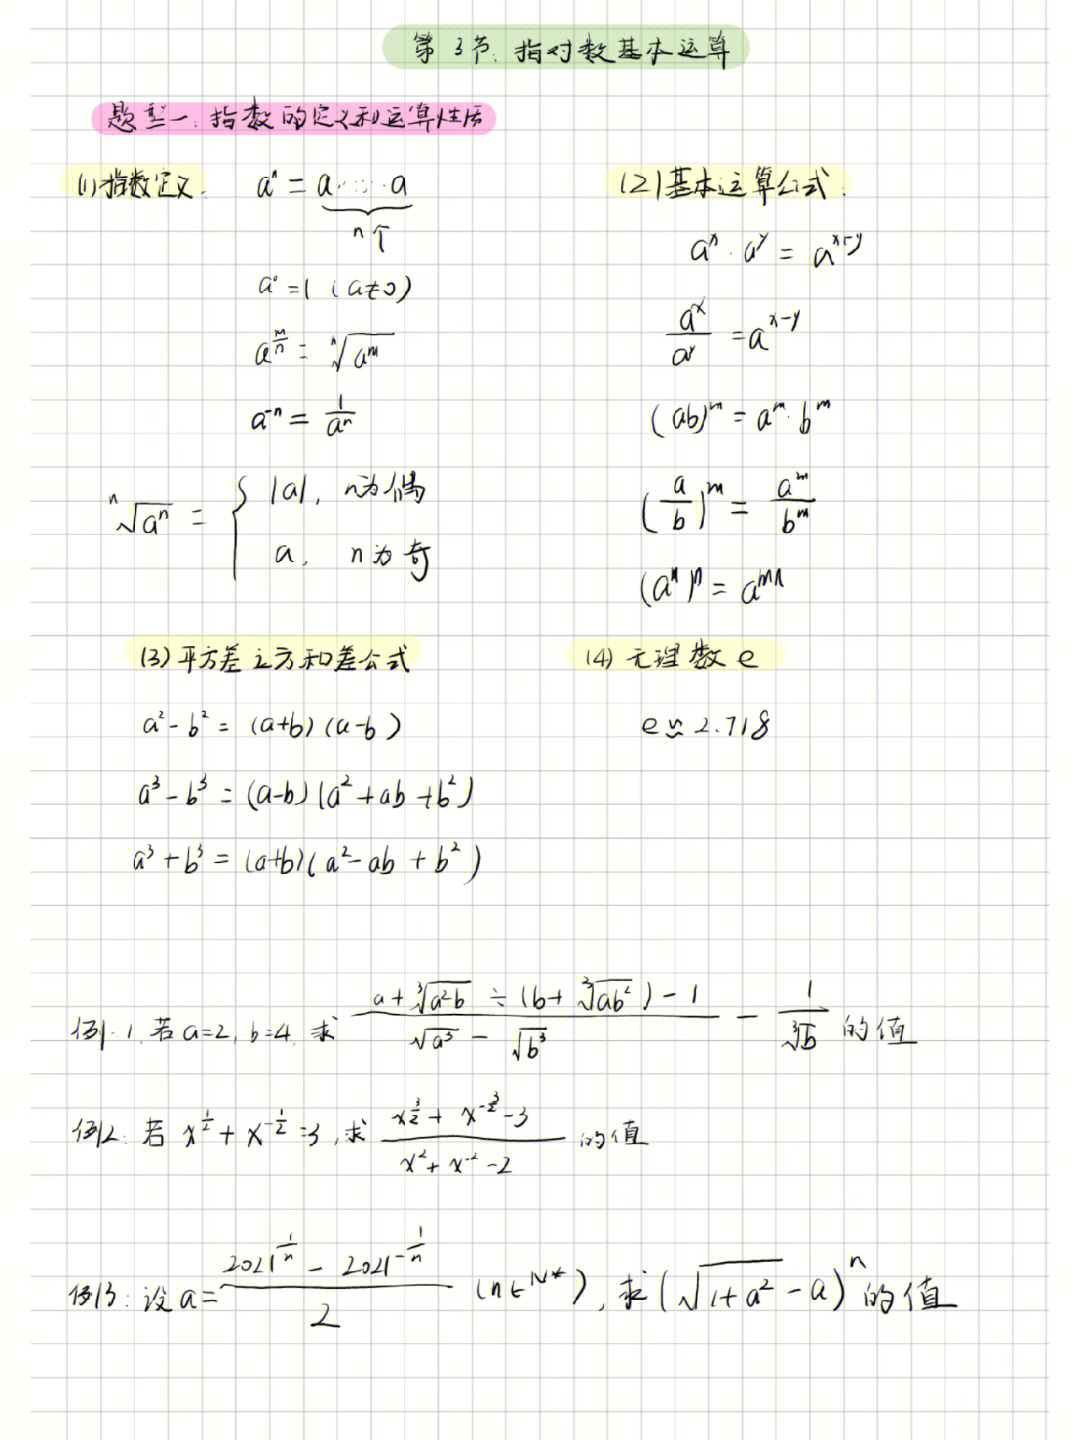 第3节. 指对数基本运算
题型一. 指数的定义和运算性质
(1)指数定义.
aⁿ = a······a
n个
a⁰ = 1 (a≠0)
a^(m/n) = ⁿ√(a^m)
a^(-n) = 1/aⁿ
ⁿ√(aⁿ) = { |a|, n为偶
a, n为奇
(2)基本运算公式.
a^x · a^y = a^(x+y)
a^x/a^y = a^(x-y)
(ab)^m = a^m · b^m
(a/b)^m = a^m/b^m
(a^m)^n = a^(mn)
(3)平方差立方和差公式
a² - b² = (a+b)(a-b)
a³ - b³ = (a-b)(a² + ab + b²)
a³ + b³ = (a+b)(a² - ab + b²)
(4)无理数e
e≈2.718
例1. 若a=2, b=4, 求 (a + ³√(a²b) ÷ (b + ³√(ab²)) - 1)/(√a³ - √b³) - 1/³√b 的值
例2. 若 x^(1/2) + x^(-1/2) = 3, 求 (x^(3/2) + x^(-3/2) - 3)/(x² + x^(-2) - 2) 的值
例3: 设a = (2021^(1/n) - 2021^(-1/n))/2 (n∈N*), 求(√(1+a²) - a)ⁿ的值